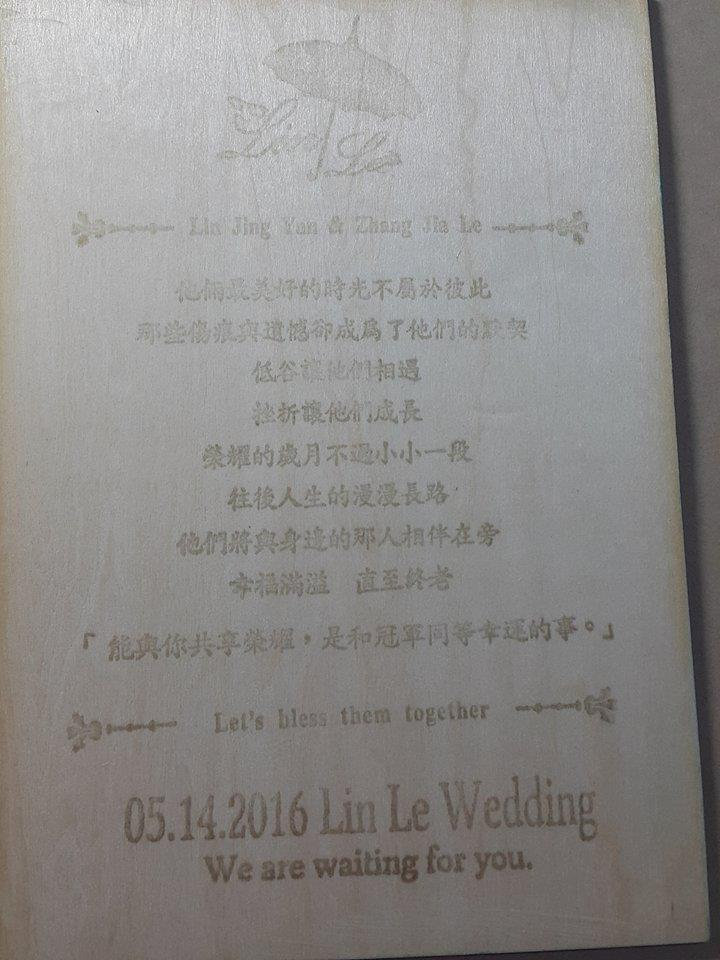 Lin Le
Lin Jing Yan & Zhang Jia Le
他倆最美好的時光不屬於彼此
那些傷痕與遺憾卻成為了他們的默契
低谷讓他們相遇
挫折讓他們成長
榮耀的歲月不過小小一段
往後人生的漫漫長路
他們將與身邊的那人相伴在旁
幸福滿溢 直至終老
「能與你共享榮耀，是和冠軍同等幸運的事。」
Let's bless them together
05.14.2016 Lin Le Wedding
We are waiting for you.